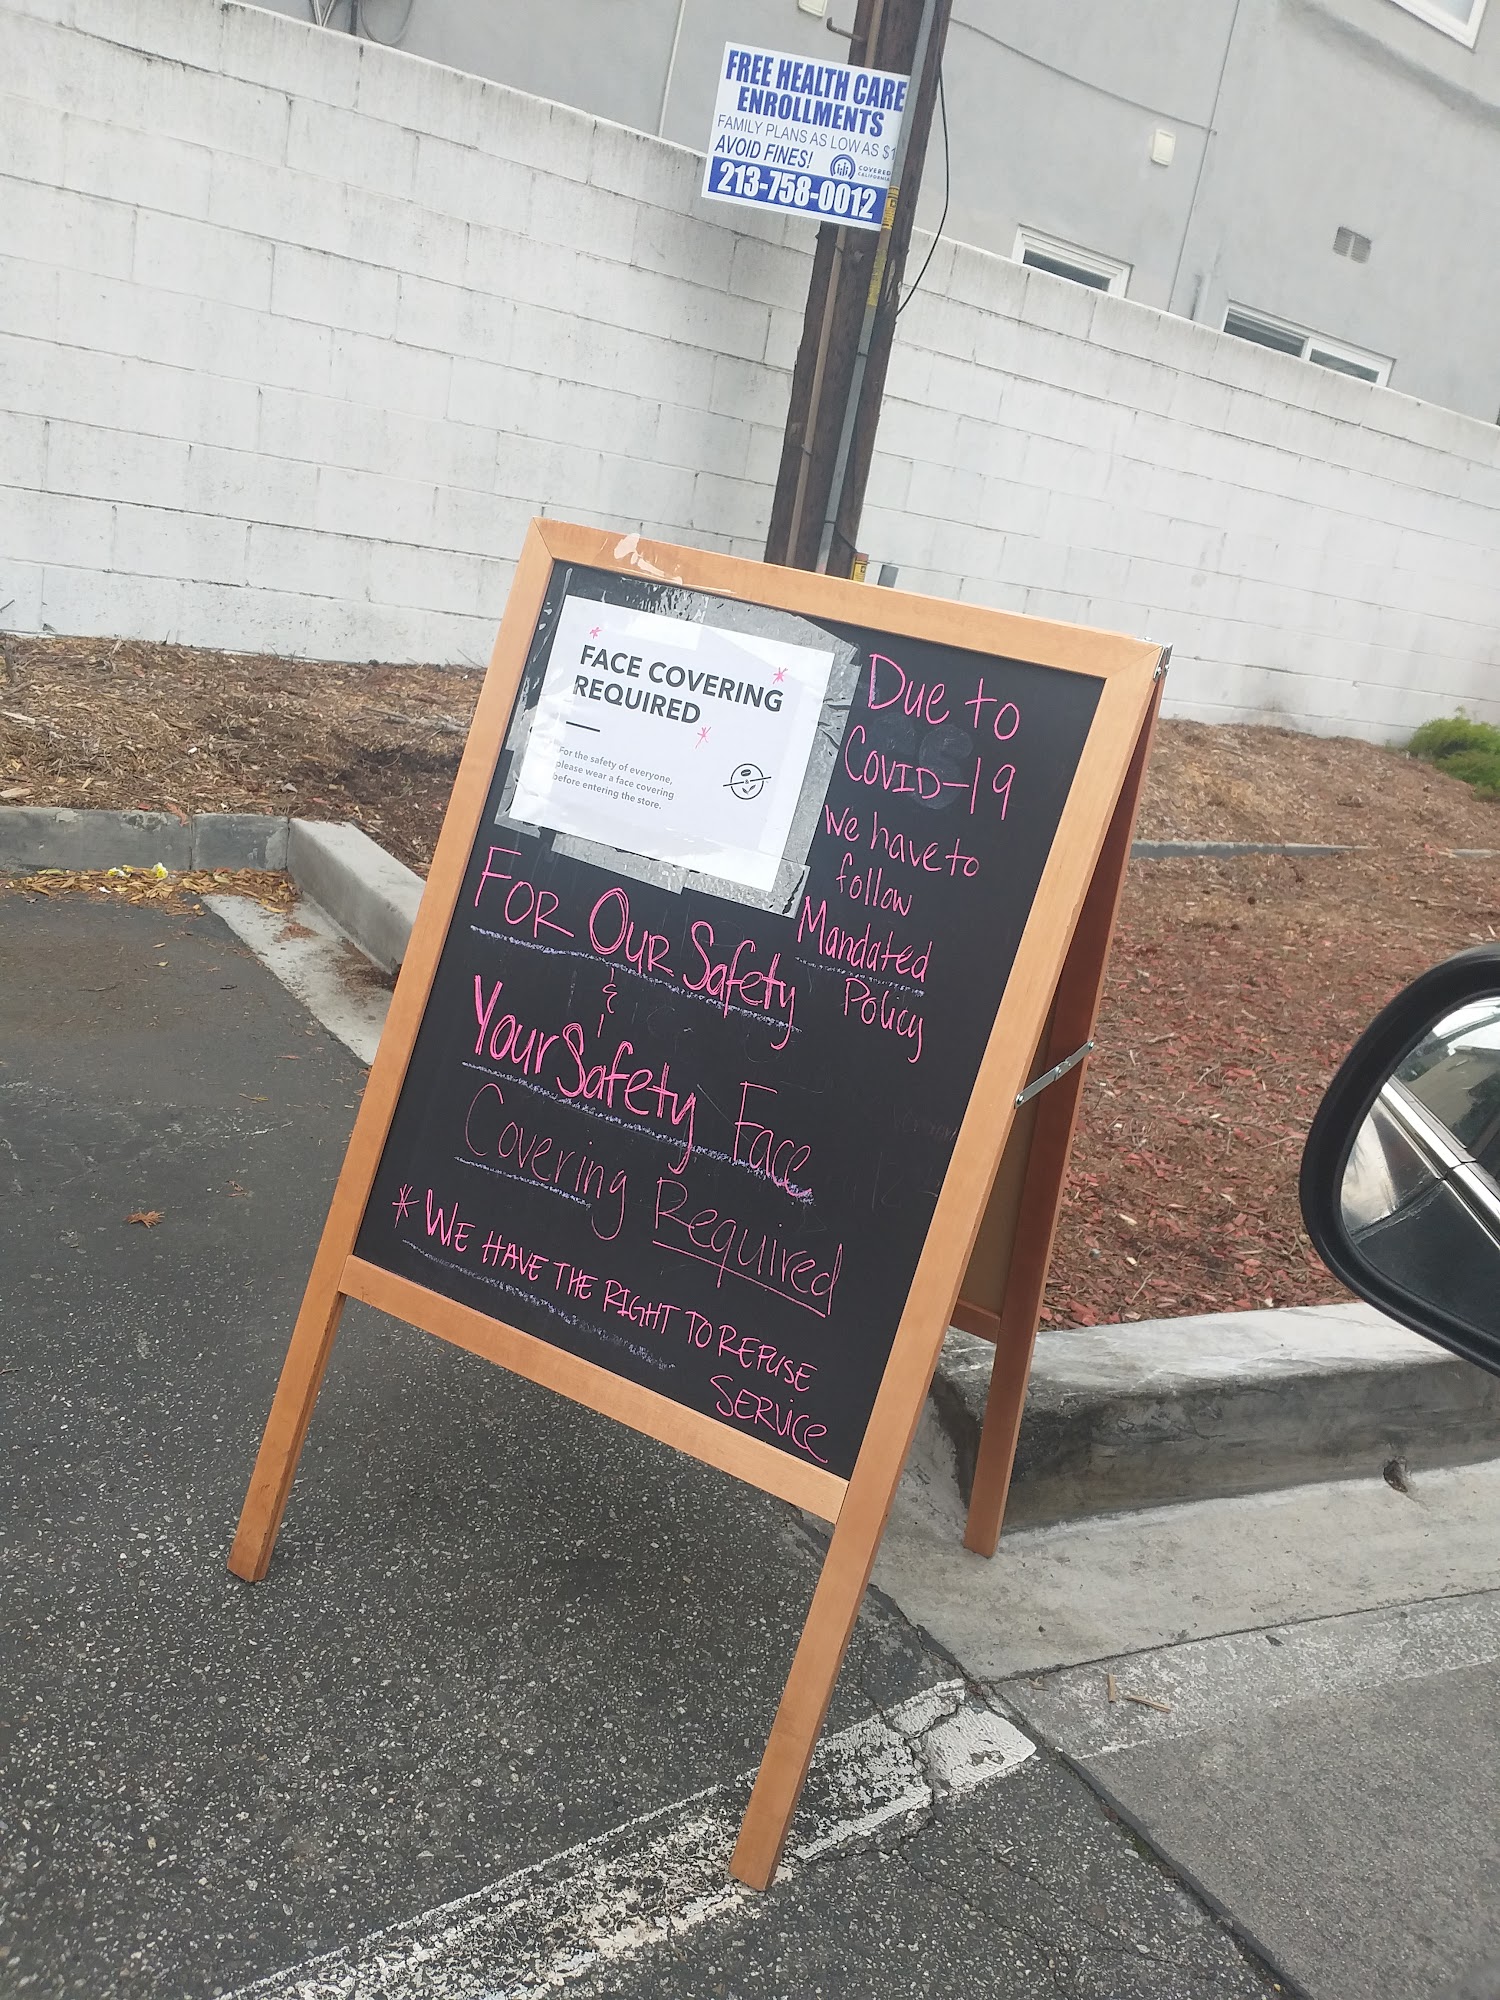 FREE HEALTH CARE
ENROLLMENTS
FAMILY PLANS AS LOW AS $1
AVOID FINES!
COVERED
CALIFORNIA
213-758-0012
* FACE COVERING *
REQUIRED *
For the safety of everyone,
please wear a face covering
before entering the store.
Due to
COVID-19
We have to
follow
Mandated
Policy
FOR OUR Safety
&
Your Safety Face
Covering Required
* WE HAVE THE RIGHT TO REFUSE
SERVICE